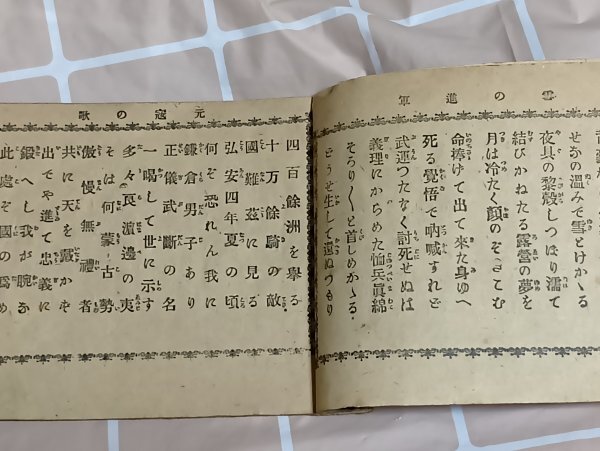 雪の進軍
せなの温みで雪とけかゝる
夜具の黍殻しつほり濡て
結びかねたる露營の夢を
月は冷たく顔のぞきこむ
命捧けて出て來た身ゆへ
死る覺悟で吶喊すれど
武運つたなく討死せぬば
義理にからめた恤兵眞綿
そろり〱と首しめかゝる
どうせ生して還ぬつもり
元寇の歌
四百餘洲を擧る
十万餘騎の敵
國難茲に見る
弘安四年夏の頃
何ぞ恐れん我に
鎌倉男子あり
正儀武斷の名
一喝して世に示す
多々良濱邊の夷
そは何蒙古勢
傲慢無禮者
共に天を戴かず
出でや進て忠義に
鍛へし我が腕
此處ぞ國の爲め